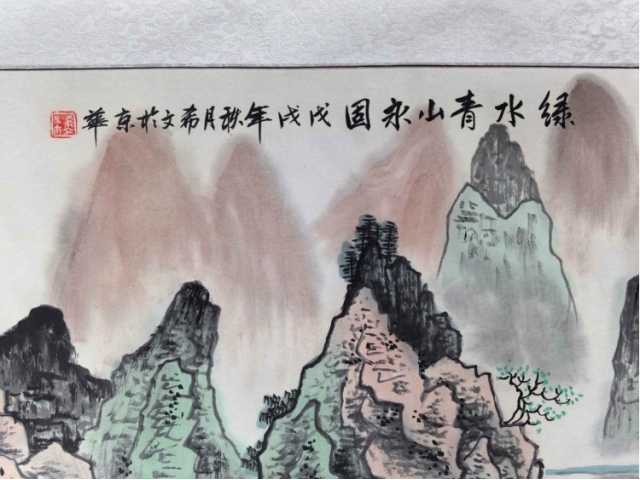 绿水青山永固戊戌年秋月希文於京華